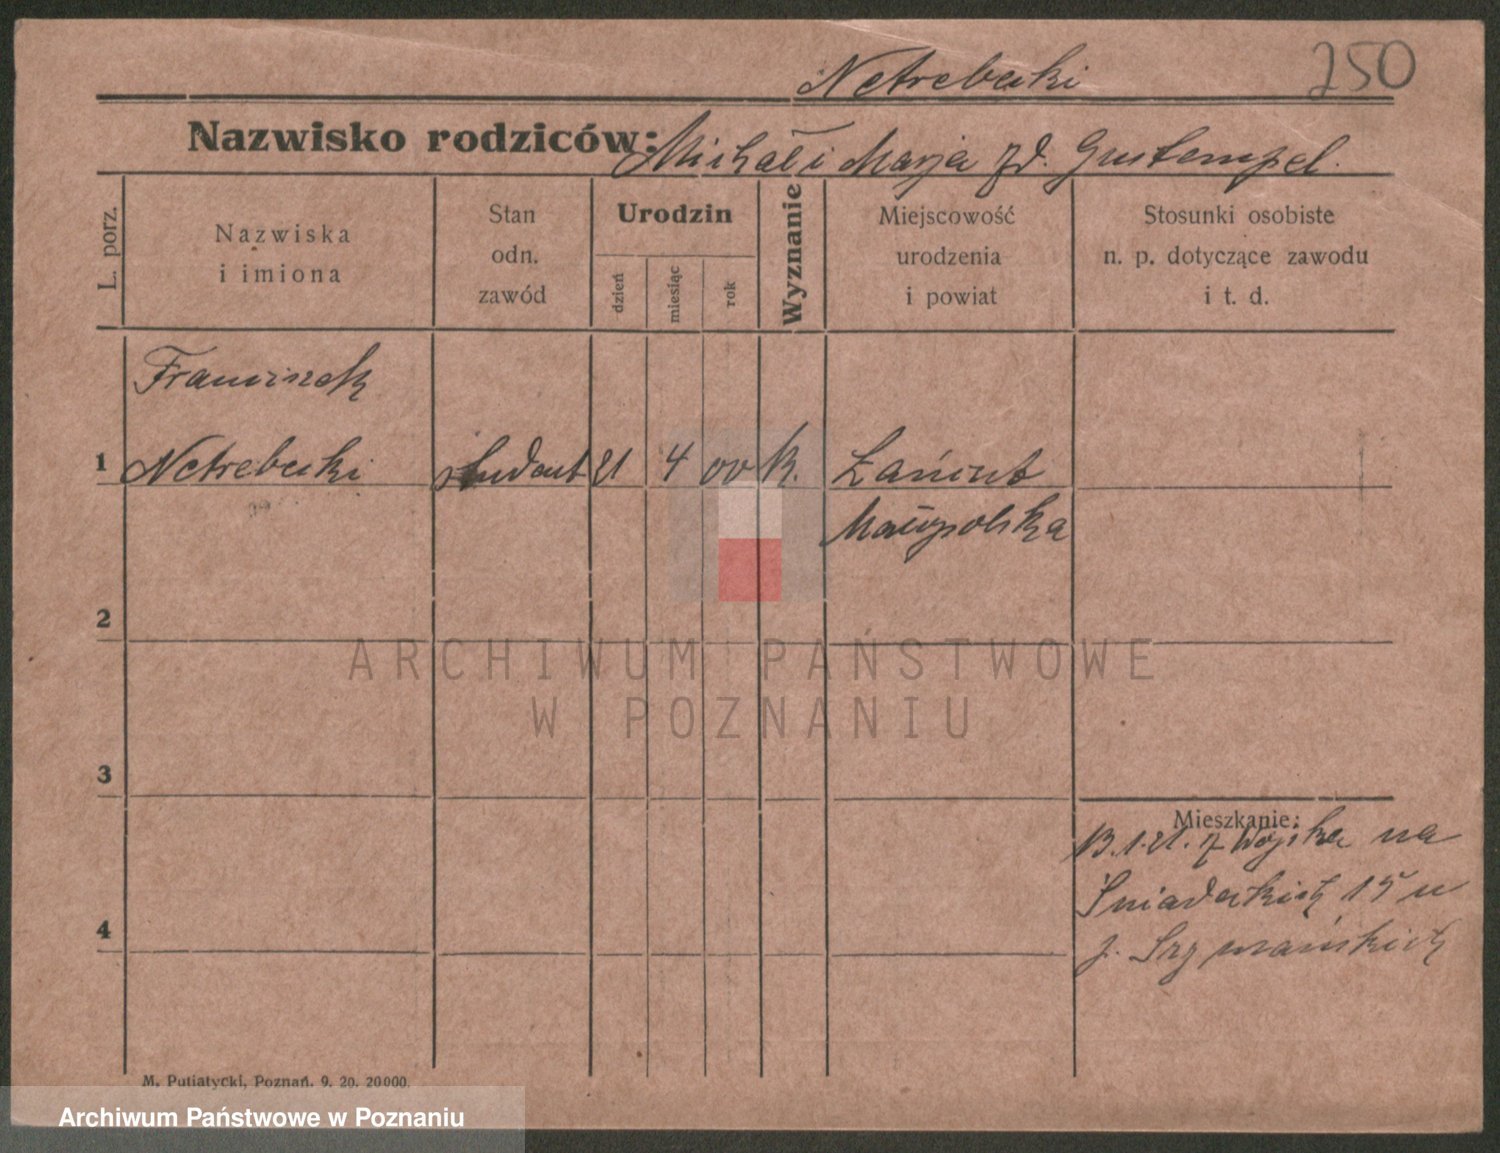 Netrebecki 250
Nazwisko rodziców: Michał i Marja zd. Gustempel.
L. porz.
Nazwiska
i imiona
Stan
odn.
zawód
Urodzin
dzień
miesiąc
rok
Wyznanie
Miejscowość
urodzenia
i powiat
Stosunki osobiste
n. p. dotyczące zawodu
i t. d.
Franciszek
1 Netrebecki student 21 4 00 k. Łańcut
Małopolska
2
ARCHIWUM PAŃSTWOWE
W POZNANIU
3
4
Mieszkanie:
13.1.21. z Wojska na
Śniadeckich 15 u
p. Szymańskich
M. Putiatycki, Poznań. 9. 20. 20000.
Archiwum Państwowe w Poznaniu